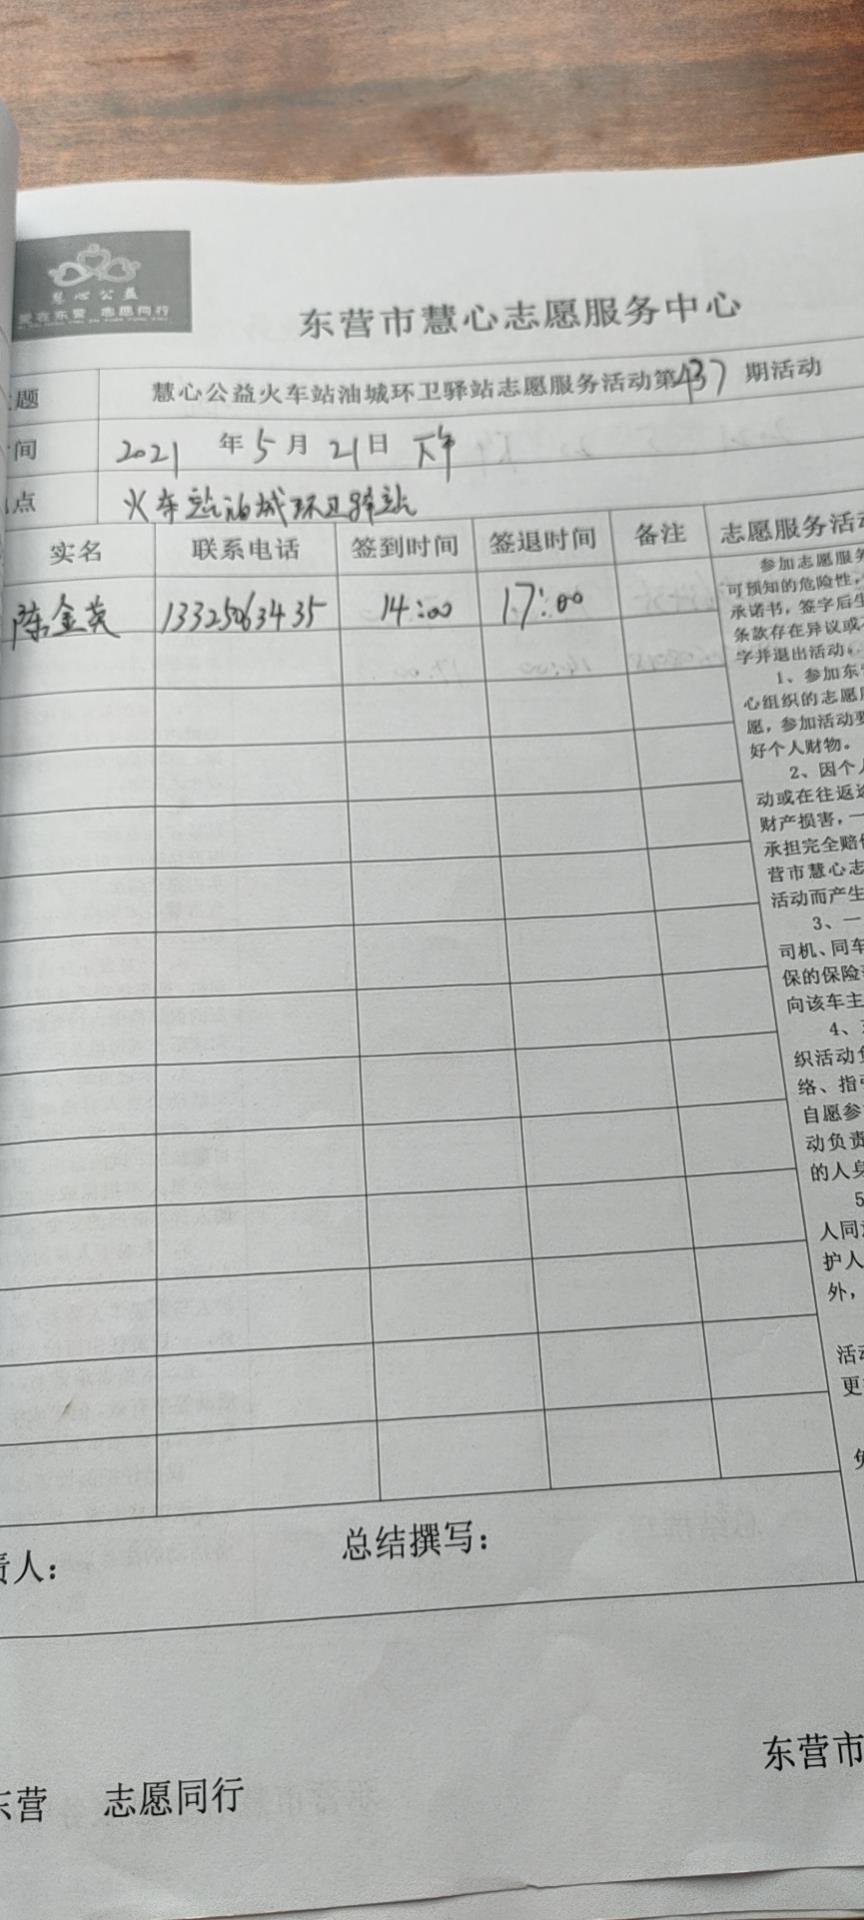 慧心公益
爱在东营 志愿同行
东营市慧心志愿服务中心
题 慧心公益火车站油城环卫驿站志愿服务活动第437期活动
间 2021年5月21日 下午
点 火车站油城环卫驿站
实名 联系电话 签到时间 签退时间 备注 志愿服务活动
陈金英 13325063435 14:00 17:00
参加志愿服务
可预知的危险性，
承诺书，签字后生
条款存在异议或不
字并退出活动。
1、参加东营
心组织的志愿服
愿，参加活动要
好个人财物。
2、因个人
动或在往返途
财产损害，一
承担完全赔偿
营市慧心志
活动而产生
3、一
司机、同车
保的保险
向该车主
4、
织活动负
络、指引
自愿参
动负责
的人身
5
人同
护人
外，
活动
更
责人： 总结撰写：
东营市
东营 志愿同行